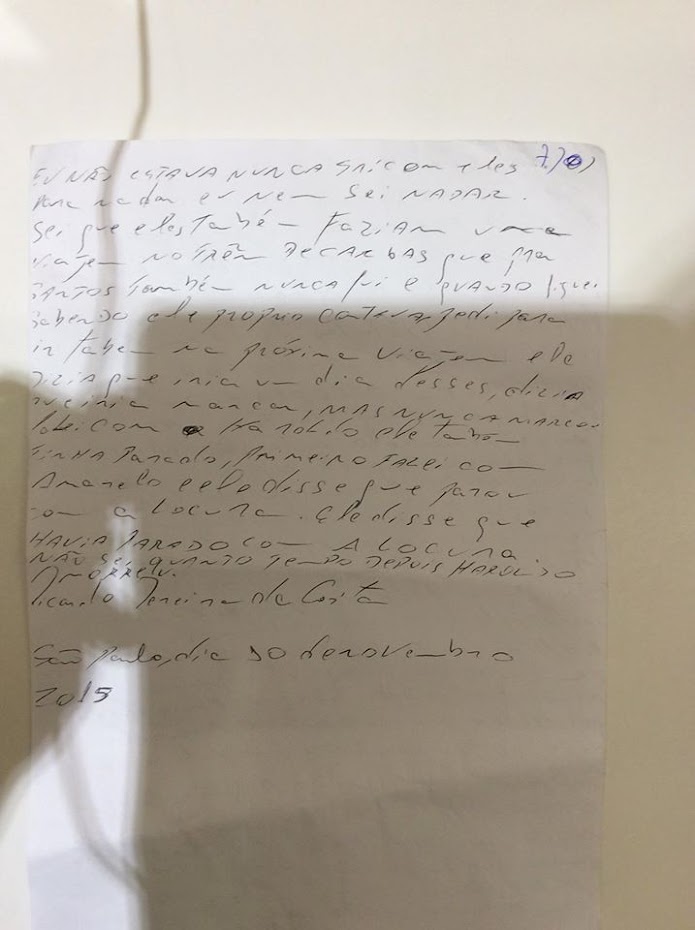 EU NÃO ESTAVA NUNCA com eles
para nadar eu nem sei NADAR.
Sei que eles també- FAZIAM uma
viajem NO TRÊN DE CARGAS que pra
SANTOS também NUNCA fui e QUANDO fiquei
SABENDO ele proprio contava pedi para
ir tabem na próxima viajem ele
DIZIA que iria um dia desses, dizia
que iria marcar, MAS NUNCA MARCOU
falei com o Haroldo ele també-
TINHA PARADO, PRIMEIRO FALEI com
Amarelo e ele disse que parou
com a Locura. Ele disse que
HAVIA PARADO COM A LOCURA
NÃO SEI QUANTO TEMPO DEPOIS HAROLDO
MORREU.
Ricardo Pereira da Costa
São Paulo, dia 30 de novembro
2015